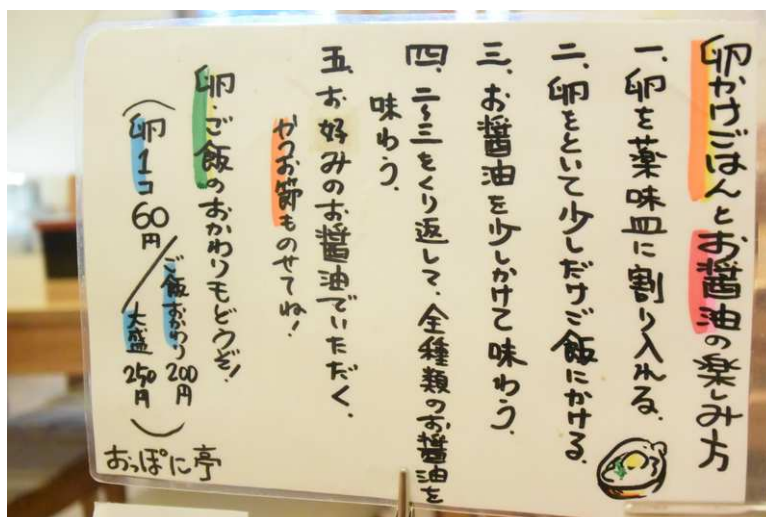 卵かけごはんとお醤油の楽しみ方
一、卵を薬味皿に割り入れる、
二、卵をといて少しだけご飯にかける、
三、お醤油を少しかけて味わう、
四、二〜三をくり返して、全種類のお醤油を
味わう、
五、お好みのお醤油でいただく、
かつお節ものせてね!
卵ご飯のおかわりもどうぞ!
(卵1コ60円/ご飯おかわり200円
大盛250円)
おっぽに亭